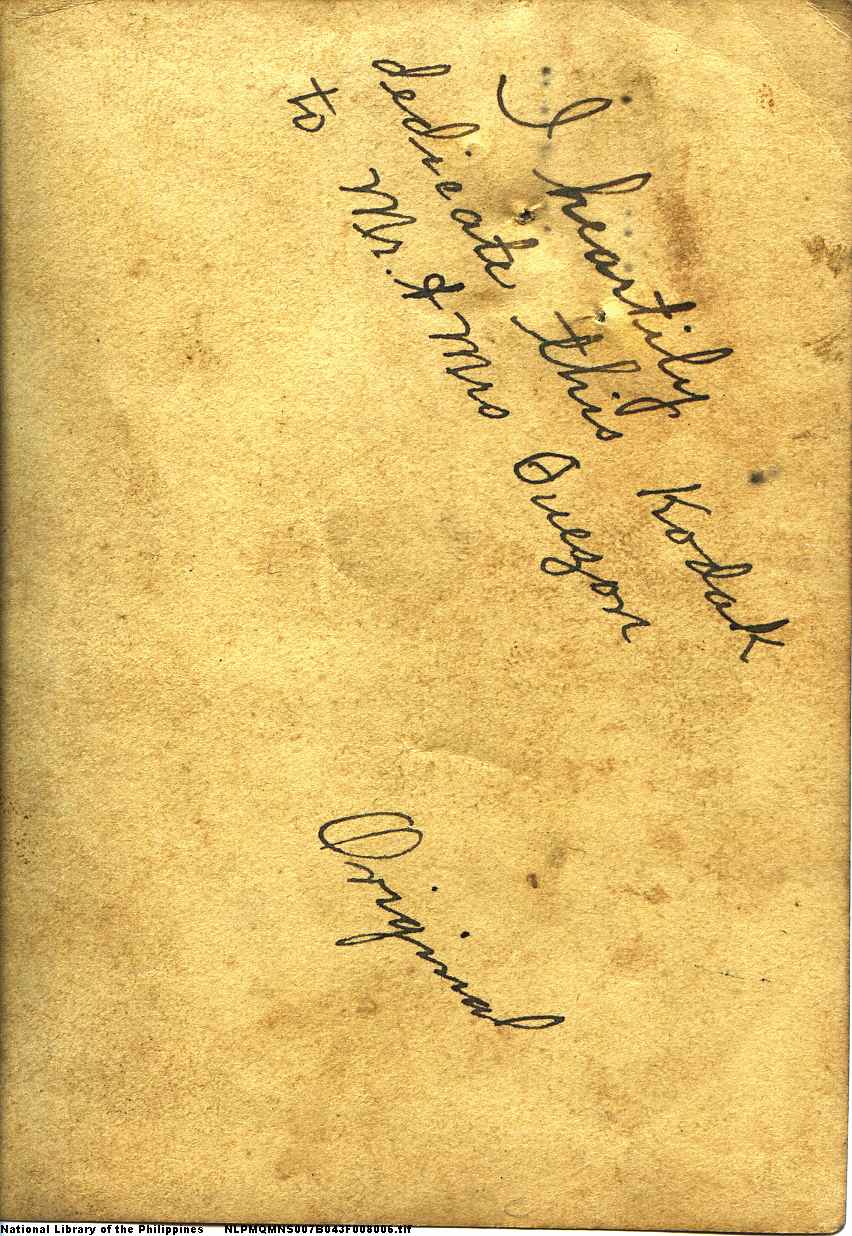 I heartily
dedicate this Kodak
to Mr. & Mrs Quezon
Original
National Library of the Philippines NLPMQMNS007B043F008006.tif